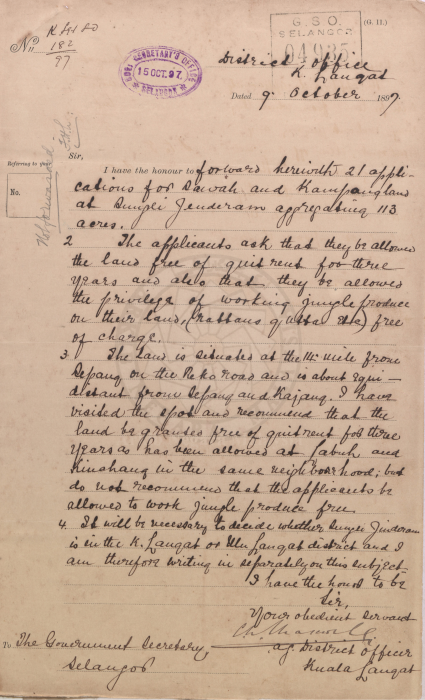 G. S. O.
SELANGOR
(G. 11.)
No.
182
97
SECRETARY'S OFFICE
15 OCT. 97
SELANGOR
District Office
K. Langat
Dated 9 October 1897
Referring to
No.
Sir,
I have the honour to forward herewith 21 appli-
cations for Sawah and Kampong land
at Sungei Jenderam aggregating 113
acres.
2 The applicants ask that they be allowed
the land free of quitrent for three
years and also that they be allowed
the privilege of working jungle produce
on their land, (rattans gutta etc) free
of charge.
3. The land is situated at the 11th mile from
Sepang on the Reko road and is about equi-
distant from Sepang and Kajang. I have
visited the spot and recommend that the
land be granted free of quitrent for three
years as has been allowed at Labuh and
in the same neighbourhood; but
do not recommend that the applicants be
allowed to work jungle produce free
4. It will be necessary to decide whether Sungei Jinderam
is in the K. Langat or Ulu Langat district and I
am therefore writing in separately on this subject.
I have the honor to be
Sir,
Your obedient Servant
ag District Officer
Kuala Langat
To The Government Secretary,
Selangor